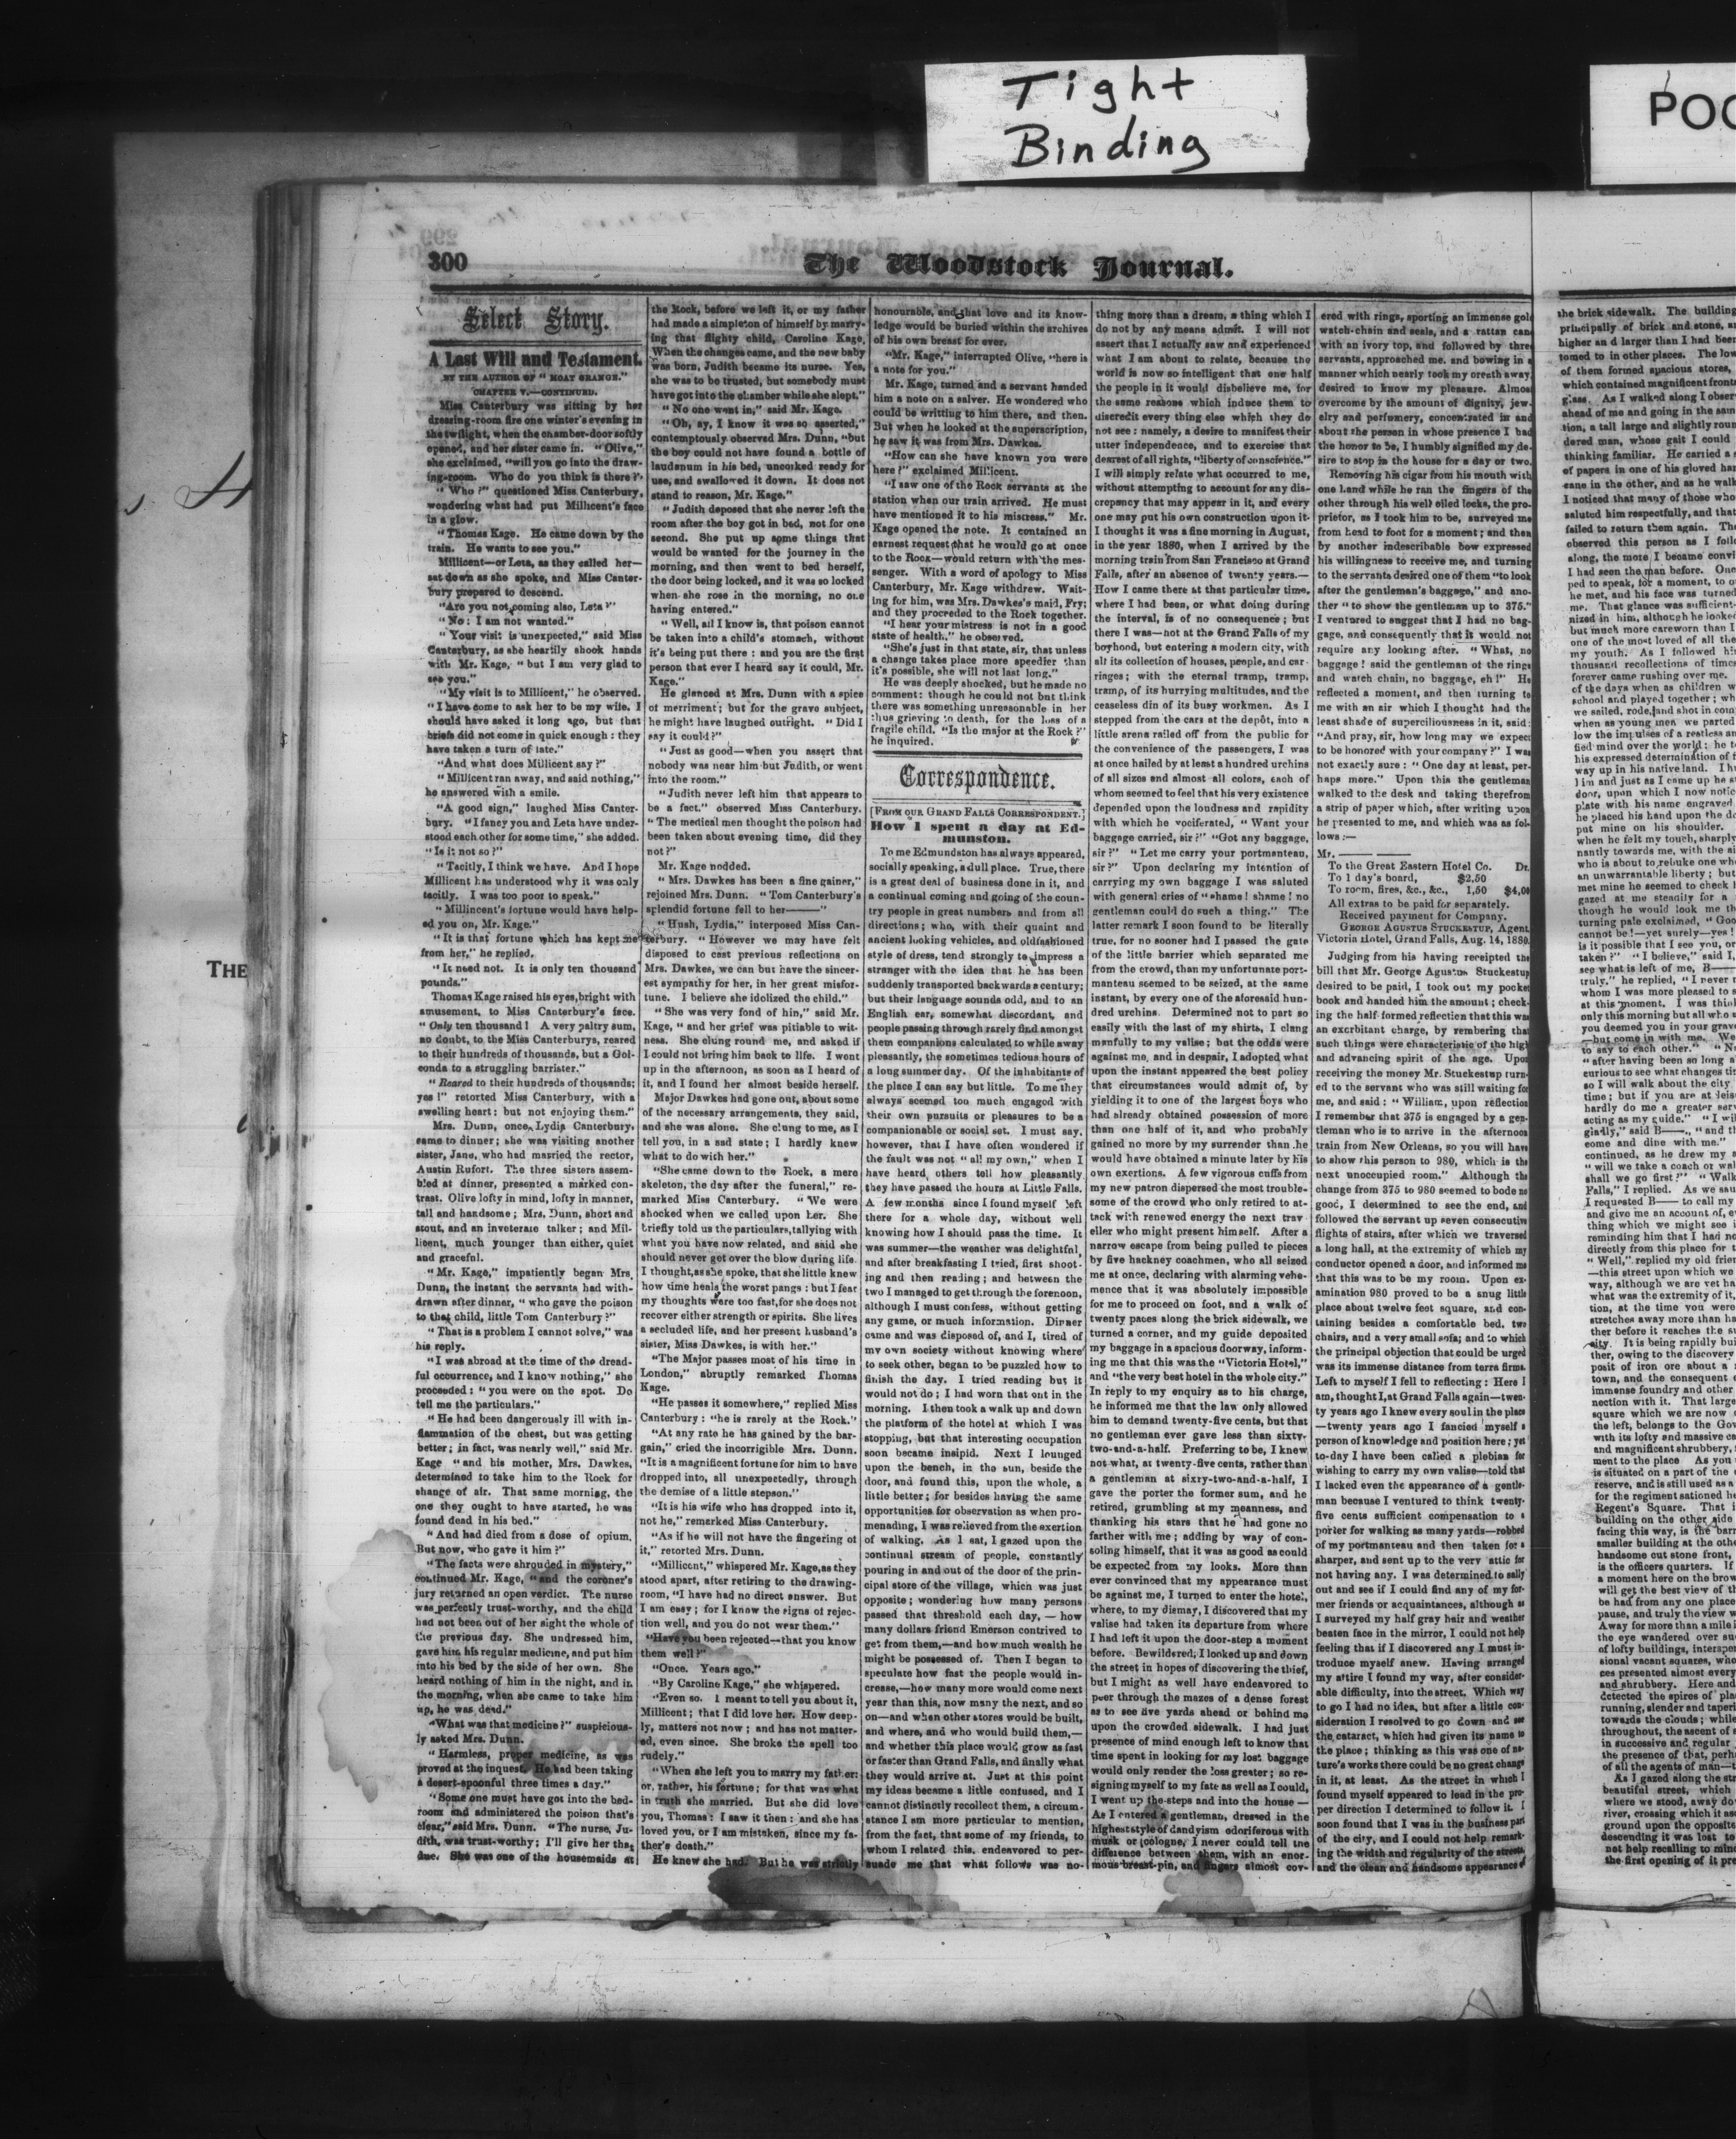 Tight
Binding
POO
300
The Woodstock Journal.
THE
Select Story.
A Last Will and Testament.
BY THE AUTHOR OF "MOAT GRANGE."
CHAPTER V.—CONTINUED.
Miss Canterbury was sitting by her
dressing-room fire one winter's evening in
the twilight, when the chamber-door softly
opened, and her sister came in. "Olive,"
she exclaimed, "will you go into the draw-
ing-room. Who do you think is there?"
"Who?" questioned Miss Canterbury,
wondering what had put Millicent's face
in a glow.
"Thomas Kage. He came down by the
train. He wants to see you."
Millicent—or Leta, as they called her—
sat down as she spoke, and Miss Canter-
bury prepared to descend.
"Are you not coming also, Leta?"
"No: I am not wanted."
"Your visit is unexpected," said Miss
Canterbury, as she heartily shook hands
with Mr. Kage, "but I am very glad to
see you."
"My visit is to Millicent," he observed.
"I have come to ask her to be my wife. I
should have asked it long ago, but that
briefs did not come in quick enough: they
have taken a turn of late."
"And what does Millicent say?"
"Millicent ran away, and said nothing,"
he answered with a smile.
"A good sign," laughed Miss Canter-
bury. "I fancy you and Leta have under-
stood each other for some time," she added.
"Is it not so?"
"Tacitly, I think we have. And I hope
Millicent has understood why it was only
tacitly. I was too poor to speak."
"Millincent's fortune would have help-
ed you on, Mr. Kage."
"It is that fortune which has kept me
from her," he replied.
"It need not. It is only ten thousand
pounds."
Thomas Kage raised his eyes, bright with
amusement, to Miss Canterbury's face.
"Only ten thousand! A very paltry sum,
no doubt, to the Miss Canterburys, reared
to their hundreds of thousands, but a Gol-
conda to a struggling barrister."
"Reared to their hundreds of thousands;
yes!" retorted Miss Canterbury, with a
swelling heart: but not enjoying them."
Mrs. Dunn, once Lydia Canterbury,
came to dinner; she was visiting another
sister, Jane, who had married the rector,
Austin Rufort. The three sisters assem-
bled at dinner, presented a marked con-
trast. Olive lofty in mind, lofty in manner,
tall and handsome; Mrs. Dunn, short and
stout, and an inveterate talker; and Mil-
licent, much younger than either, quiet
and graceful.
"Mr. Kage," impatiently began Mrs.
Dunn, the instant the servants had with-
drawn after dinner, "who gave the poison
to that child, little Tom Canterbury?"
"That is a problem I cannot solve," was
his reply.
"I was abroad at the time of the dread-
ful occurrence, and I know nothing," she
proceeded: "you were on the spot. Do
tell me the particulars."
"He had been dangerously ill with in-
flammation of the chest, but was getting
better; in fact, was nearly well," said Mr.
Kage "and his mother, Mrs. Dawkes,
determined to take him to the Rock for
change of air. That same morning, the
one they ought to have started, he was
found dead in his bed."
"And had died from a dose of opium.
But now, who gave it him?"
"The facts were shrouded in mystery,"
continued Mr. Kage, "and the coroner's
jury returned an open verdict. The nurse
was perfectly trust-worthy, and the child
had not been out of her sight the whole of
the previous day. She undressed him,
gave him his regular medicine, and put him
into his bed by the side of her own. She
heard nothing of him in the night, and in
the morning, when she came to take him
up, he was dead."
"What was that medicine?" suspicious-
ly asked Mrs. Dunn.
"Harmless, proper medicine, as was
proved at the inquest. He had been taking
a desert-spoonful three times a day."
"Some one must have got into the bed-
room and administered the poison that's
clear," said Mrs. Dunn. "The nurse, Ju-
dith, was trust-worthy; I'll give her that
due. She was one of the housemaids at
the Rock, before we left it, or my father
had made a simpleton of himself by marry-
ing that flighty child, Caroline Kage,
When the changes came, and the new baby
was born, Judith became its nurse. Yes,
she was to be trusted, but somebody must
have got into the chamber while she slept."
"No one went in," said Mr. Kage.
"Oh, ay, I know it was so asserted,"
contemptously observed Mrs. Dunn, "but
the boy could not have found a bottle of
laudanum in his bed, uncorked ready for
use, and swallowed it down. It does not
stand to reason, Mr. Kage."
"Judith deposed that she never left the
room after the boy got in bed, not for one
second. She put up some things that
would be wanted for the journey in the
morning, and then went to bed herself,
the door being locked, and it was so locked
when she rose in the morning, no one
having entered."
"Well, all I know is, that poison cannot
be taken into a child's stomach, without
it's being put there: and you are the first
person that ever I heard say it could, Mr.
Kage."
He glanced at Mrs. Dunn with a spice
of merriment; but for the grave subject,
he might have laughed outright. "Did I
say it could?"
"Just as good—when you assert that
nobody was near him but Judith, or went
into the room."
"Judith never left him that appears to
be a fact." observed Miss Canterbury.
"The medical men thought the poison had
been taken about evening time, did they
not?"
Mr. Kage nodded.
"Mrs. Dawkes has been a fine gainer,"
rejoined Mrs. Dunn. "Tom Canterbury's
splendid fortune fell to her——"
"Hush, Lydia," interposed Miss Can-
terbury. "However we may have felt
disposed to cast previous reflections on
Mrs. Dawkes, we can but have the sincer-
est sympathy for her, in her great misfor-
tune. I believe she idolized the child."
"She was very fond of hin," said Mr.
Kage, "and her grief was pitiable to wit-
ness. She clung round me, and asked if
I could not bring him back to life. I went
up in the afternoon, as soon as I heard of
it, and I found her almost beside herself.
Major Dawkes had gone out, about some
of the necessary arrangements, they said,
and she was alone. She clung to me, as I
tell you, in a sad state; I hardly knew
what to do with her."
"She came down to the Rock, a mere
skeleton, the day after the funeral," re-
marked Miss Canterbury. "We were
shocked when we called upon her. She
briefly told us the particulars, tallying with
what you have now related, and said she
should never get over the blow during life.
I thought, as she spoke, that she little knew
how time heals the worst pangs: but I fear
my thoughts were too fast, for she does not
recover either strength or spirits. She lives
a secluded life, and her present husband's
sister, Miss Dawkes, is with her."
"The Major passes most of his time in
London," abruptly remarked Thomas
Kage.
"He passes it somewhere," replied Miss
Canterbury: "he is rarely at the Rock."
"At any rate he has gained by the bar-
gain," cried the incorrigible Mrs. Dunn.
"It is a magnificent fortune for him to have
dropped into, all unexpectedly, through
the demise of a little stepson."
"It is his wife who has dropped into it,
not he," remarked Miss Canterbury.
"As if he will not have the fingering of
it," retorted Mrs. Dunn.
"Millicent," whispered Mr. Kage, as they
stood apart, after retiring to the drawing-
room, "I have had no direct answer. But
I am easy; for I know the signs of rejec-
tion well, and you do not wear them."
"Have you been rejected—that you know
them well?"
"Once. Years ago."
"By Caroline Kage," she whispered.
"Even so. I meant to tell you about it,
Millicent; that I did love her. How deep-
ly, matters not now; and has not matter-
ed, even since. She broke the spell too
rudely."
"When she left you to marry my father:
or, rather, his fortune; for that was what
in truth she married. But she did love
you, Thomas: I saw it then: and she has
loved you, or I am mistaken, since my fa-
ther's death."
He knew she had. But he was strictly
honourable, and that love and its know-
ledge would be buried within the archives
of his own breast for ever.
"Mr. Kage," interrupted Olive, "here is
a note for you."
Mr. Kage, turned and a servant handed
him a note on a salver. He wondered who
could be writting to him there, and then.
But when he looked at the superscription,
he saw it was from Mrs. Dawkes.
"How can she have known you were
here?" exclaimed Millicent.
"I saw one of the Rock servants at the
station when our train arrived. He must
have mentioned it to his mistress." Mr.
Kage opened the note. It contained an
earnest request that he would go at once
to the Rock—would return with the mes-
senger. With a word of apology to Miss
Canterbury, Mr. Kage withdrew. Wait-
ing for him, was Mrs. Dawkes's maid, Fry;
and they proceeded to the Rock together.
"I hear your mistress is not in a good
state of health," he observed.
"She's just in that state, sir, that unless
a change takes place more speedier than
it's possible, she will not last long."
He was deeply shocked, but he made no
comment: though he could not but think
there was something unreasonable in her
thus grieving to death, for the loss of a
fragile child. "Is the major at the Rock?"
he inquired.
Correspondence.
[FROM OUR GRAND FALLS CORRESPONDENT.]
How I spent a day at Ed-
munston.
To me Edmundston has always appeared,
socially speaking, a dull place. True, there
is a great deal of business done in it, and
a continual coming and going of the coun-
try people in great numbers and from all
directions; who, with their quaint and
ancient looking vehicles, and oldfashioned
style of dress, tend strongly to impress a
stranger with the idea that he has been
suddenly transported backwards a century;
but their language sounds odd, and to an
English ear, somewhat discordant, and
people passing through rarely find amongst
them companions calculated to while away
pleasantly, the sometimes tedious hours of
a long summer day. Of the inhabitants of
the place I can say but little. To me they
always seemed too much engaged with
their own pursuits or pleasures to be a
companionable or social set. I must say,
however, that I have often wondered if
the fault was not "all my own," when I
have heard others tell how pleasantly
they have passed the hours at Little Falls.
A few months since I found myself left
there for a whole day, without well
knowing how I should pass the time. It
was summer—the weather was delightful,
and after breakfasting I tried, first shoot-
ing and then reading; and between the
two I managed to get through the forenoon,
although I must confess, without getting
any game, or much information. Dinner
came and was disposed of, and I, tired of
my own society without knowing where
to seek other, began to be puzzled how to
finish the day. I tried reading but it
would not do; I had worn that out in the
morning. I then took a walk up and down
the platform of the hotel at which I was
stopping, but that interesting occupation
soon became insipid. Next I lounged
upon the bench, in the sun, beside the
door, and found this, upon the whole, a
little better; for besides having the same
opportunities for observation as when pro-
menading, I was relieved from the exertion
of walking. As I sat, I gazed upon the
continual stream of people, constantly
pouring in and out of the door of the prin-
cipal store of the village, which was just
opposite; wondering how many persons
passed that threshold each day, — how
many dollars friend Emerson contrived to
get from them,—and how much wealth he
might be possessed of. Then I began to
speculate how fast the people would in-
crease,—how many more would come next
year than this, now many the next, and so
on—and when other stores would be built,
and where, and who would build them,—
and whether this place would grow as fast
or faster than Grand Falls, and finally what
they would arrive at. Just at this point
my ideas became a little confused, and I
cannot distinctly recollect them, a circum-
stance I am more particular to mention,
from the fact, that some of my friends, to
whom I related this, endeavored to per-
suade me that what follows was no-
thing more than a dream, a thing which I
do not by any means admit. I will not
assert that I actually saw and experienced
what I am about to relate, because the
world is now so intelligent that one half
the people in it would disbelieve me, for
the same reasons which induce them to
discredit every thing else which they do
not see: namely, a desire to manifest their
utter independence, and to exercise that
dearest of all rights, "liberty of conscience."
I will simply relate what occurred to me,
without attempting to account for any dis-
crepancy that may appear in it, and every
one may put his own construction upon it.
I thought it was a fine morning in August,
in the year 1880, when I arrived by the
morning train from San Francisco at Grand
Falls, after an absence of twenty years.—
How I came there at that particular time,
where I had been, or what doing during
the interval, is of no consequence; but
there I was—not at the Grand Falls of my
boyhood, but entering a modern city, with
all its collection of houses, people, and car-
riages; with the eternal tramp, tramp,
tramp, of its hurrying multitudes, and the
ceaseless din of its busy workmen. As I
stepped from the cars at the depôt, into a
little arena railed off from the public for
the convenience of the passengers, I was
at once hailed by at least a hundred urchins
of all sizes and almost all colors, each of
whom seemed to feel that his very existence
depended upon the loudness and rapidity
with which he vociferated, "Want your
baggage carried, sir?" "Got any baggage,
sir?" "Let me carry your portmanteau,
sir?" Upon declaring my intention of
carrying my own baggage I was saluted
with general cries of "shame! shame! no
gentleman could do such a thing." The
latter remark I soon found to be literally
true, for no sooner had I passed the gate
of the little barrier which separated me
from the crowd, than my unfortunate port-
manteau seemed to be seized, at the same
instant, by every one of the aforesaid hun-
dred urchins. Determined not to part so
easily with the last of my shirts, I clung
manfully to my valise; but the odds were
against me, and in despair, I adopted what
upon the instant appeared the best policy
that circumstances would admit of, by
yielding it to one of the largest boys who
had already obtained possession of more
than one half of it, and who probably
gained no more by my surrender than he
would have obtained a minute later by his
own exertions. A few vigorous cuffs from
my new patron dispersed the most trouble-
some of the crowd who only retired to at-
tack with renewed energy the next trav
eller who might present himself. After a
narrow escape from being pulled to pieces
by five hackney coachmen, who all seized
me at once, declaring with alarming vehe-
mence that it was absolutely impossible
for me to proceed on foot, and a walk of
twenty paces along the brick sidewalk, we
turned a corner, and my guide deposited
my baggage in a spacious doorway, inform-
ing me that this was the "Victoria Hotel,"
and "the very best hotel in the whole city."
In reply to my enquiry as to his charge,
he informed me that the law only allowed
him to demand twenty-five cents, but that
no gentleman ever gave less than sixty-
two-and-a-half. Preferring to be, I knew
not what, at twenty-five cents, rather than
a gentleman at sixty-two-and-a-half, I
gave the porter the former sum, and he
retired, grumbling at my meanness, and
thanking his stars that he had gone no
farther with me; adding by way of con-
soling himself, that it was as good as could
be expected from my looks. More than
ever convinced that my appearance must
be against me, I turned to enter the hotel,
where, to my dismay, I discovered that my
valise had taken its departure from where
I had left it upon the door-step a moment
before. Bewildered; I looked up and down
the street in hopes of discovering the thief,
but I might as well have endeavored to
peer through the mazes of a dense forest
as to see five yards ahead or behind me
upon the crowded sidewalk. I had just
presence of mind enough left to know that
time spent in looking for my lost baggage
would only render the loss greater; so re-
signing myself to my fate as well as I could,
I went up the steps and into the house —
As I entered a gentleman, dressed in the
highest style of dandyism odoriferous with
musk or cologne, I never could tell the
difference between them, with an enor-
mous breast-pin, and fingers almost cov-
ered with rings, sporting an immense gold
watch-chain and seals, and a rattan cane
with an ivory top, and followed by three
servants, approached me. and bowing in a
manner which nearly took my breath away,
desired to know my pleasure. Almost
overcome by the amount of dignity, jew-
elry and perfumery, concentrated in and
about the person in whose presence I had
the honor to be, I humbly signified my de-
sire to stop in the house for a day or two.
Removing his cigar from his mouth with
one hand while he ran the fingers of the
other through his well oiled locks, the pro-
prietor, as I took him to be, surveyed me
from head to foot for a moment; and then
by another indescribable bow expressed
his willingness to receive me, and turning
to the servants desired one of them "to look
after the gentleman's baggage," and ano-
ther "to show the gentleman up to 375."
I ventured to suggest that I had no bag-
gage, and consequently that it would not
require any looking after. "What, no
baggage! said the gentleman of the rings
and watch chain, no baggage, eh!" He
reflected a moment, and then turning to
me with an air which I thought had the
least shade of superciliousness in it, said:
"And pray, sir, how long may we expect
to be honored with your company?" I was
not exactly sure: "One day at least, per-
haps more." Upon this the gentleman
walked to the desk and taking therefrom
a strip of paper which, after writing upon
he presented to me, and which was as fol-
lows:—
Mr. —— ——
To the Great Eastern Hotel Co. Dr.
To 1 day's board, $2,50
To room, fires, &c., &c., 1,50 $4,00
All extras to be paid for separately.
Received payment for Company.
GEORGE AGUSTUS STUCKESTUP, Agent
Victoria Hotel, Grand Falls, Aug. 14, 1880.
Judging from his having receipted the
bill that Mr. George Agustus Stuckestup
desired to be paid, I took out my pocket
book and handed him the amount; check-
ing the half-formed reflection that this was
an exorbitant charge, by rembering that
such things were characteristic of the high
and advancing spirit of the age. Upon
receiving the money Mr. Stuckestup turn-
ed to the servant who was still waiting for
me, and said: "William, upon reflection
I remember that 375 is engaged by a gen-
tleman who is to arrive in the afternoon
train from New Orleans, so you will have
to show this person to 980, which is the
next unoccupied room." Although the
change from 375 to 980 seemed to bode no
good, I determined to see the end, and
followed the servant up seven consecutive
flights of stairs, after which we traversed
a long hall, at the extremity of which my
conductor opened a door, and informed me
that this was to be my room. Upon ex-
amination 980 proved to be a snug little
place about twelve feet square, and con-
taining besides a comfortable bed, two
chairs, and a very small sofa; and to which
the principal objection that could be urged
was its immense distance from terra firma.
Left to myself I fell to reflecting: Here I
am, thought I, at Grand Falls again—twen-
ty years ago I knew every soul in the place
—twenty years ago I fancied myself a
person of knowledge and position here; yet
to-day I have been called a plebian for
wishing to carry my own valise—told that
I lacked even the appearance of a gentle-
man because I ventured to think twenty-
five cents sufficient compensation to a
porter for walking as many yards—robbed
of my portmanteau and then taken for a
sharper, and sent up to the very attic for
not having any. I was determined to sally
out and see if I could find any of my for-
mer friends or acquaintances, although as
I surveyed my half gray hair and weather
beaten face in the mirror, I could not help
feeling that if I discovered any I must in-
troduce myself anew. Having arranged
my attire I found my way, after consider-
able difficulty, into the street. Which way
to go I had no idea, but after a little con-
sideration I resolved to go down and see
the cataract, which had given its name to
the place; thinking as this was one of na-
ture's works there could be no great change
in it, at least. As the street in which I
found myself appeared to lead in the pro-
per direction I determined to follow it. I
soon found that I was in the business part
of the city, and I could not help remark-
ing the width and regularity of the streets,
and the clean and handsome appearance of
the brick sidewalk. The building
principally of brick and stone, a
higher and larger than I had been
tomed to in other places. The low
of them formed spacious stores,
which contained magnificent front
glass. As I walked along I obser
ahead of me and going in the sam
tion, a tall large and slightly roun
dered man, whose gait I could
thinking familiar. He carried a
of papers in one of his gloved han
cane in the other, and as he walk
I noticed that many of those who
saluted him respectfully, and that
failed to return them again. The
observed this person as I follo
along, the more I became convi
I had seen the man before. One
ped to speak, for a moment, to o
he met, and his face was turned
me. That glance was sufficient
nized in him, although he looked
but much more careworn than I
one of the most loved of all the
my youth. As I followed hi
thousand recollections of times
forever came rushing over me.
of the days when as children w
school and played together; wh
we sailed, rode, and shot in com
when as young men we parted
low the impulses of a restless an
fied mind over the world: he t
his expressed determination of
way up in his native land. I h
him and just as I came up he
door, upon which I now notic
plate with his name engraved
he placed his hand upon the do
put mine on his shoulder.
when he felt my touch, sharply
nantly towards me, with the ai
who is about to rebuke one wh
an unwarrantable liberty; but
met mine he seemed to check
gazed at me steadily for a
though he would look me th
turning pale exclaimed, "Goo
cannot be!—yet surely—yes!
is it possible that I see you, or
taken?" "I believe," said I,
see what is left of me, B——
truly," he replied, "I never
whom I was more pleased to s
at this moment. I was thin
only this morning but all who
you deemed you in your grave
—but come in with me. We
to say to each other." "N
"after having been so long a
curious to see what changes ti
so I will walk about the city
time; but if you are at leis
hardly do me a greater ser
acting as my guide." "I wil
gladly," said B——, "and th
come and dine with me."
continued, as he drew my a
"will we take a coach or wal
shall we go first?" "Walk
Falls," I replied. As we sau
I requested B—— to call my
and give me an account of, e
thing which we might see i
reminding him that I had no
directly from this place for t
"Well," replied my old frien
—this street upon which we
way, although we are yet ha
what was the extremity of it,
tion, at the time you were
stretches away more than ha
ther before it reaches the su
city. It is being rapidly bui
ther, owing to the discovery
posit of iron ore about a
town, and the consequent
immense foundry and other
nection with it. That large
square which we are now
the left, belongs to the Gov
with its lofty and massive co
and magnificent shrubbery,
ment to the place As you
is situated on a part of the
reserve, and is still used as a
for the regiment sationed he
Regent's Square. That i
building on the other side
facing this way, is the barr
smaller building at the othe
handsome cut stone front,
is the officers quarters. If
a moment here on the brow
will get the best view of th
be had from any one place
pause, and truly the view w
Away for more than a mile
the eye wandered over su
of lofty buildings, interspe
sional vacant squares, who
ces presented almost every
and shrubbery. Here and
detected the spires of pla
running, slender and taperi
towards the clouds; while
throughout, the ascent of
in successive and regular
the presence of that, perh
of all the agents of man—t
As I gazed along the str
beautiful street, which
where we stood, away do
river, crossing which it as
ground upon the opposite
descending it was lost to
not help recalling to mind
the first opening of it pre